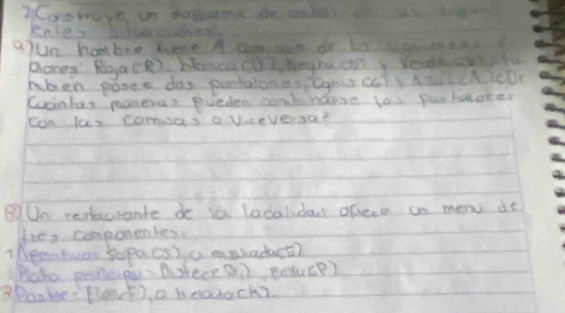 2) Construye un diagrama de
a) Un hombre tiene 4 camisas de los siguientes
colores: Roja (R), blanca (B), Negra (N) y Verde (V), tam
mbien posee dos pantalones, Gris (G) y Azul (A) ¿De
cuantas maneras pueden combinarse los pantalones
con las camisas o viceversa?
B) Un restaurante de la localidad ofrece un menu de
tres componentes:
1 Aperitivo: Sopa (S), o ensalada (E)
2 Plato principal: Bistec (B), pollo (P)
3 Postre: Flan (F), o helado (h)